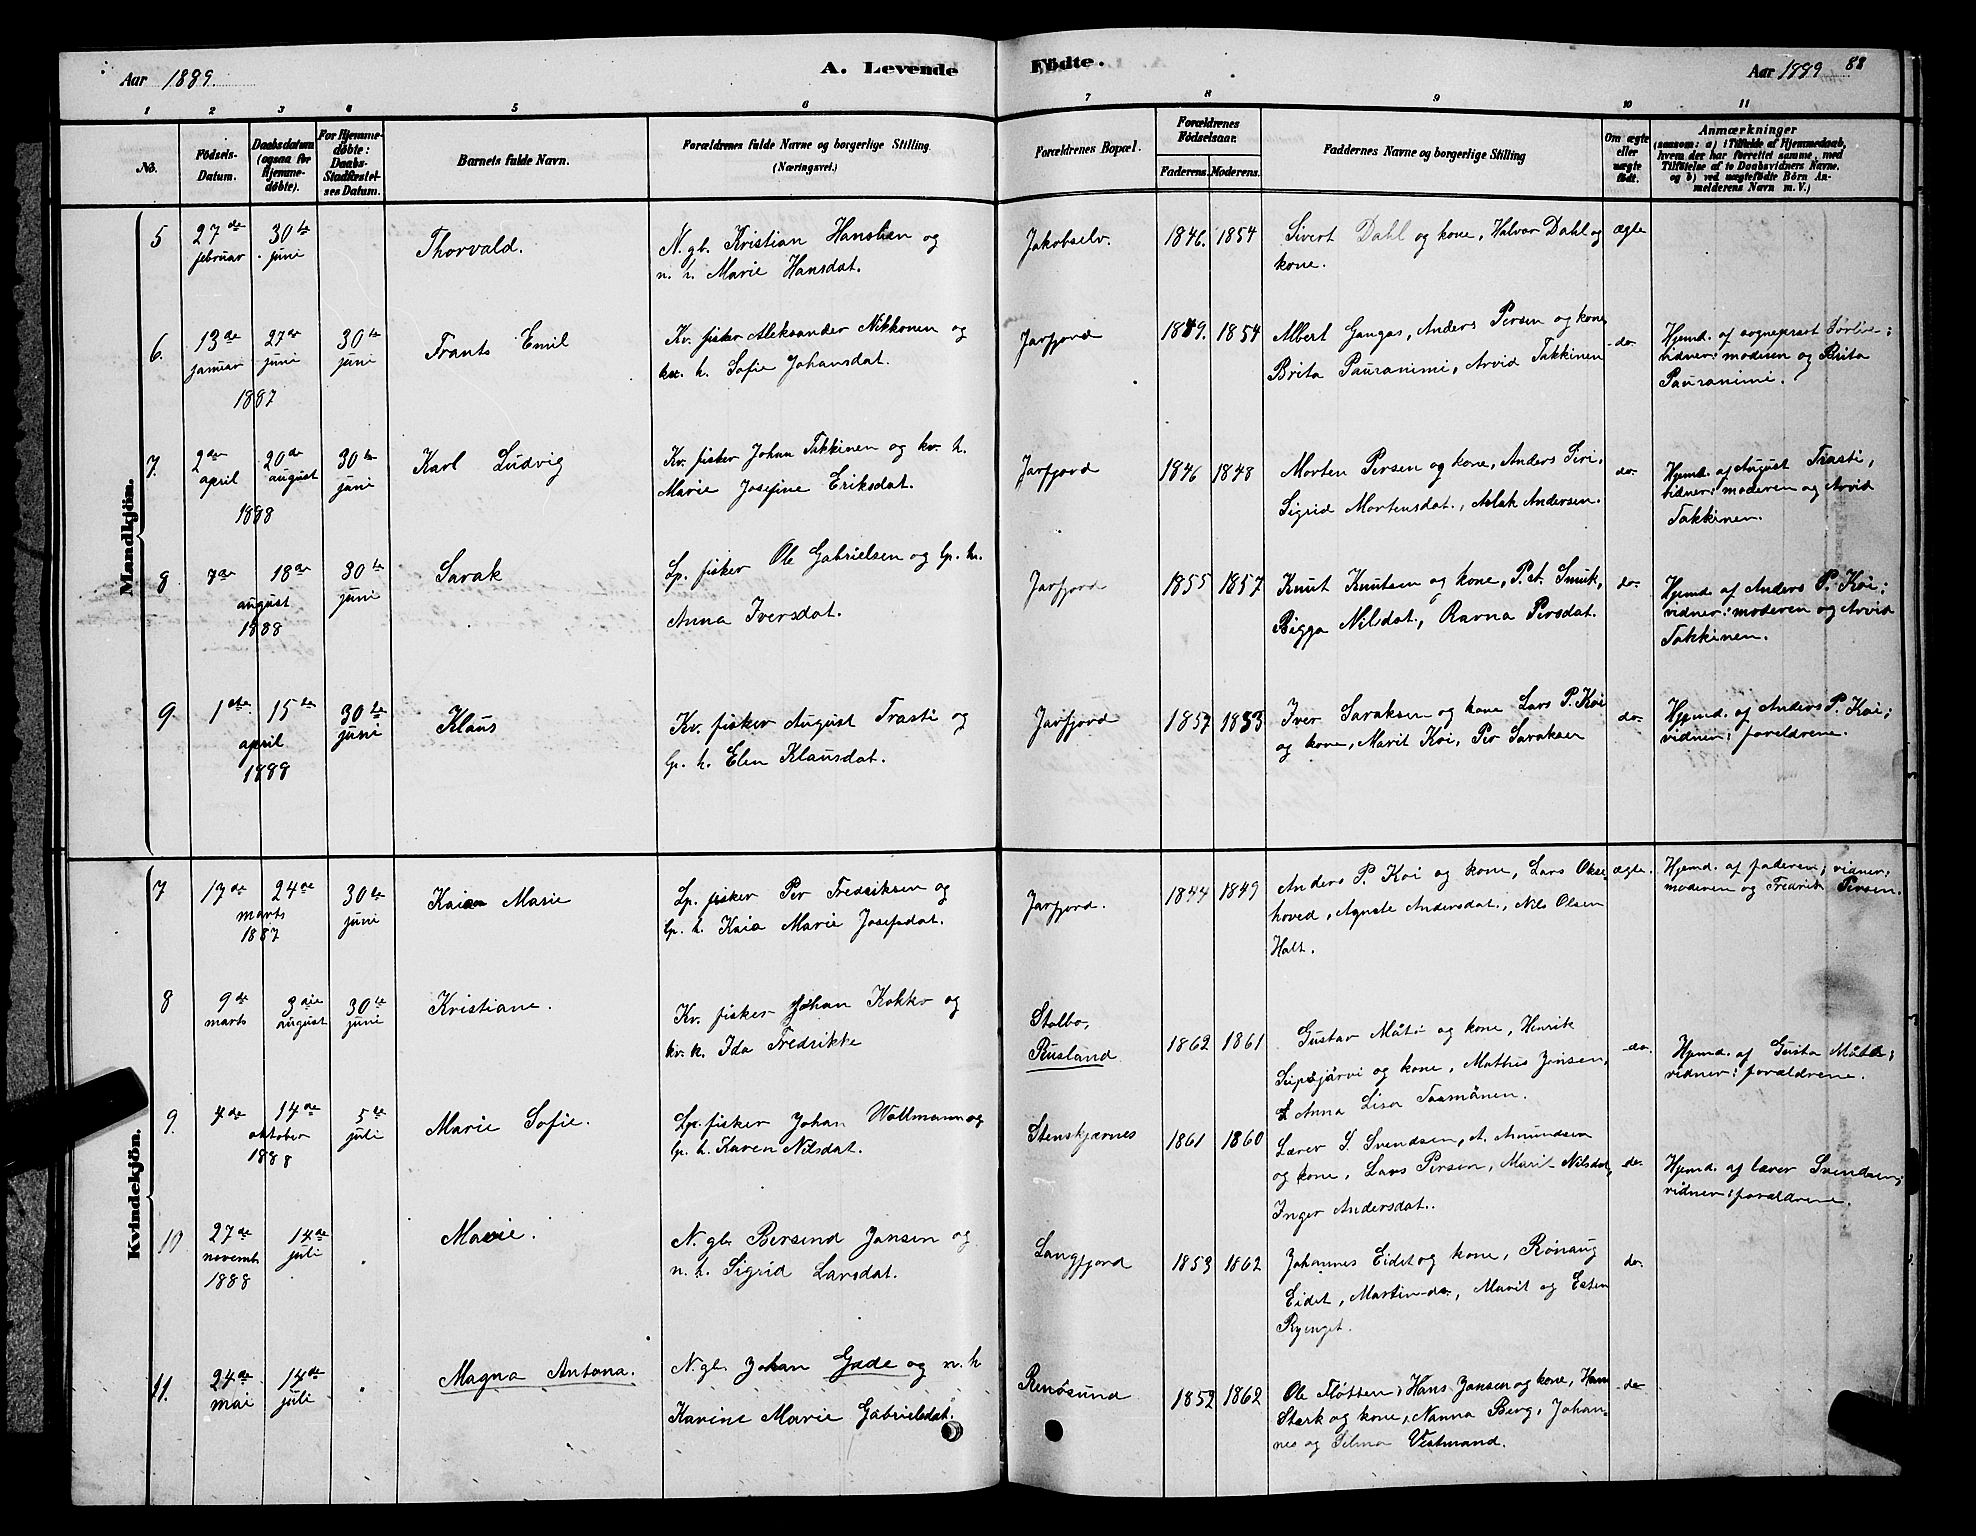 Aar 1889.
A. Levende
Födte.
Aar 1889
88
1 2 3 4 5 6 7 8 9 10 11
No.
Födsels-
Datum.
Daabsdatum
(ogsaa for
Hjemme-
döbte).
For Hjemme-
döbte:
Daabs-
Stadfæstel-
ses Datum.
Barnets fulde Navn.
Forældrenes fulde Navne og borgerlige Stilling.
(Næringsvei.)
Forældrenes Bopæl.
Forældrenes
Födselsaar.
Faderens. Moderens.
Faddernes Navne og borgerlige Stilling
Om ægte
eller
uægte
födt.
Anmærkninger
(saasom: a) i Tilfælde af Hjemmedaab,
hvem der har forrettet samme, med
Tilföielse af to Daabsvidners Navne,
og b) ved uægtefödte Börn An-
melderens Navn m. V.)
Mandkjön.
5
27de
februar
30te
juni
Thorvald.
N. gb. Kristian Hansen og
n. h. Marie Hansdat.
Jakobselv.
1846. 1854
Sivert Dahl og kone, Halvor Dahl og
kone.
ægte
6.
13de
januar
27de
juni
1887
30te
juni
Frants Emil
Kv. fisker Aleksander Nikkonen og
kv. h. Sofie Johansdat.
Jarfjord
1849. 1854
Albert Gangas, Anders Persen og kone
Brita Pauranimi, Arvid Takkinen
do.
Hjemd. af sogneprest
vidner: moderen og Brita
Pauranimi.
7.
2den
april
20de
august
1888
30te
juni
Karl Ludvig
Kv. fisker Johan Takkinen og kv. h.
Marie Josefine Eriksdat.
Jarfjord
1846 1848
Morten Persen og kone, Anders Siri,
Sigrid Mortensdat., Aslak Andersen.
do.
Hjemd. af August Trasti,
vidner: moderen og Arvid
Takkinen.
8
7de
18de
august
1888
30te
juni
Sarak
Lp. fisker Ole Gabrielsen og lp. h.
Anna Iversdat.
Jarfjord
1855 1857
Knut Knutsen og kone, P. A. Smuk,
Bigga Nilsdat., Ravna Persdat.
do.
Hjemd. af Anders P. Koi;
vidner: moderen og Arvid
Takkinen.
9
1ste
15de
april
1888
30te
juni
Klaus
Kv. fisker August Trasti og
lp. h. Elen Klausdat.
Jarfjord
1857 1853
Iver Saraksen og kone Lars P. Koi
og kone, Marit Koi, Per Saraksen
do.
Hjemd. af Anders P. Koi;
vidner: foreldrene.
Kvindekjön.
7
13de
24de
marts
1887
30te
juni
Kaia Marie
Lp. fisker Per Fredriksen og
lp. h. Kaia Marie Josefsdat.
Jarfjord.
1844 1849
Anders P. Koi og kone, Lars Okse-
hoved, Agnete Andersdat., Nils Olsen
Halt.
ægte.
Hjemd. af faderen; vidner:
moderen og Fredrik Persen.
8
9de
marts
3die
august
30te
juni
Kristiane.
Kv. fisker Johan Kokko og
kv. h. Ida Fredrikke
Stolbo,
Rusland
1862 1861
Gustav Måtö og kone, Henrik
Siipsjärvi og kone, Mathis Jonsen,
Anna Lisa
do.
Hjemd. af Gusta Måtö;
vidner: forældrene.
9.
4de
14de
oktober
1888
5te
juli
Marie Sofie.
Lp. fisker Johan Wollmann og
lp. h. Karen Nilsdat.
Stenskjærnes
1861 1860
Lærer S. Svendsen, A. Amundsen
og kone, Lars Persen, Marit Nilsdat,
Inger Andersdat.
do.
Hjemd. af lærer Svendsen;
vidner: forældrene.
10
27de
novemb.
1888
14de
juli
Marie.
N. gb. Bersvend Jonsen og
n. h. Sigrid Larsdat.
Langfjord
1853 1862
Johannes Eidet og kone, Rönaug
Eidet, Martin do., Marit og Esten
Ryenget.
do.
11.
24de
mai
14de
juli
Magna Antona.
N. gb. Johan Gade og n. h
Karine Marie Gabrielsdat.
Renösund
1852 1862
Ole Flötten, Hans Jansen og kone, Hans
Sterk og kone, Nanna Berg, Johan-
nes og Selma Vestmand.
do